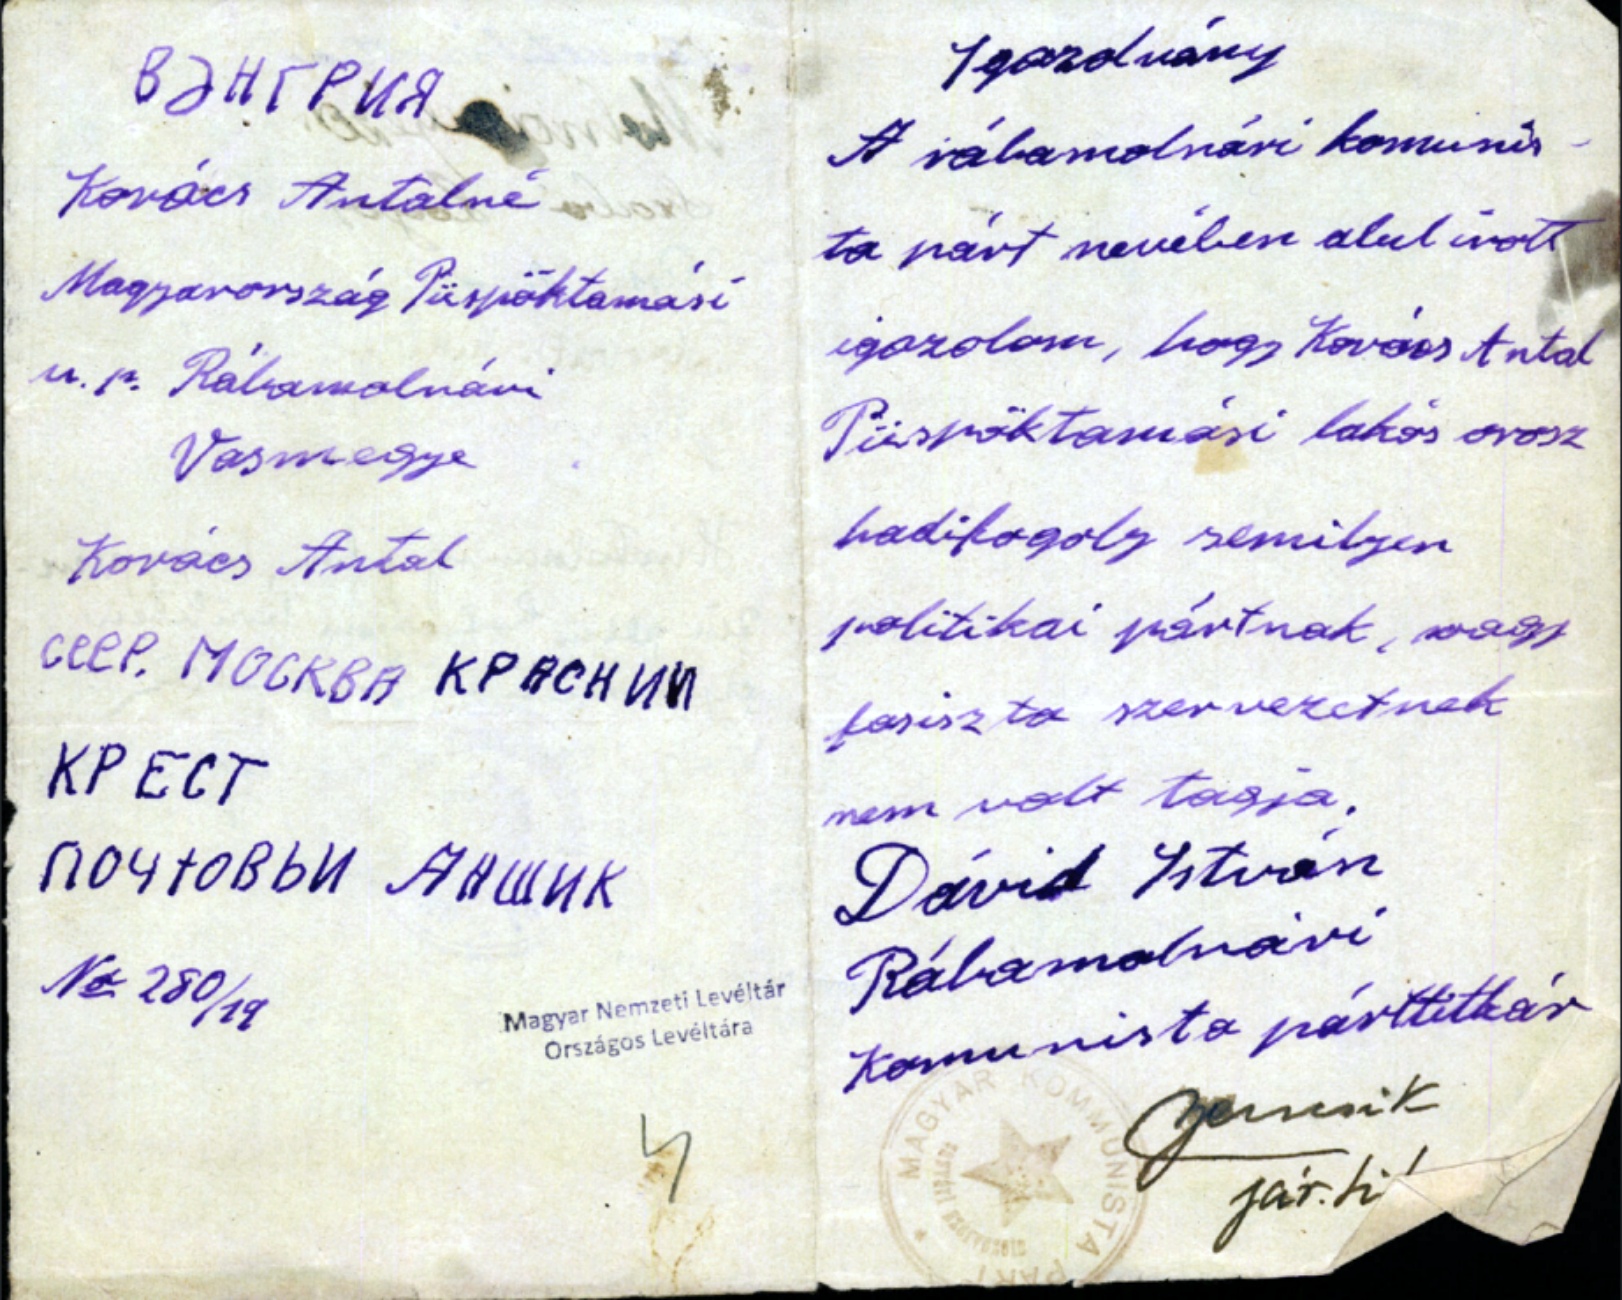 ВЭНГРИЯ
Kovács Antalné
Magyarország Püspöktamási
u. p. Rábamolnári
Vasmegye
Kovács Antal
СССР. МОСКВА КРАСНИИ
КРЕСТ
ПОЧТОВЬИ ЯНЩИК
№ 280/19
Magyar Nemzeti Levéltár
Országos Levéltára
4
Igazolvány
A rábamolnári komunis-
ta párt nevében alul irott
igazolom, hogy Kovács Antal
Püspöktamási lakós orosz
hadifogoly semilyen
politikai pártnak, vagy
fasiszta szervezetnek
nem volt tagja.
Dávid István
Rábamolnári
Komunista párttitkár
MAGYAR KOMMUNISTA PÁRT
jár. ti